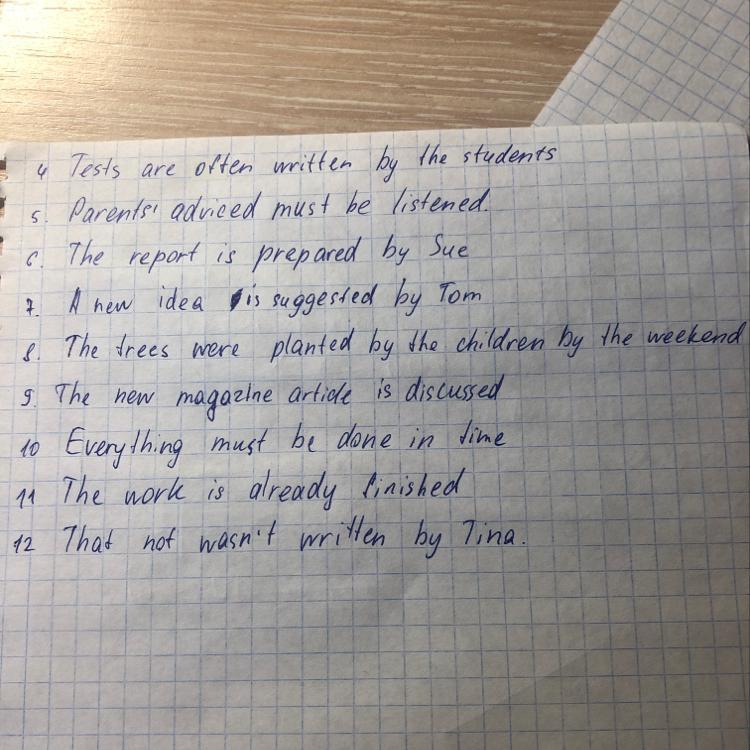 4 Tests are often written by the students
5. Parents' adviced must be listened.
6. The report is prepared by Sue
7. A new idea is suggested by Tom
8. The trees were planted by the children by the weekend
9. The new magazine article is discussed
10 Everything must be done in time
11 The work is already finished
12 That not wasn't written by Tina.